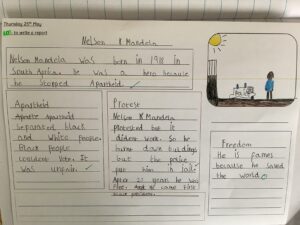 Thursday 25th May
LO: to write a report
Nelson R Mandela
Nelson Mandela was born in 1918 in
South Africa. He was a hero because
he stopped Apartheid.
Apartheid
Apartheid
separated black
and white people.
Black people
couldent vote. It
was unfair.
Protest
Nelson R Mandela
protested but it
dident work. So he
burnt down buildings
but the police
put him in Jail.
After 27 years he was
free. And he came first
black president.
Freedom
He is fames
because he saved
the world.